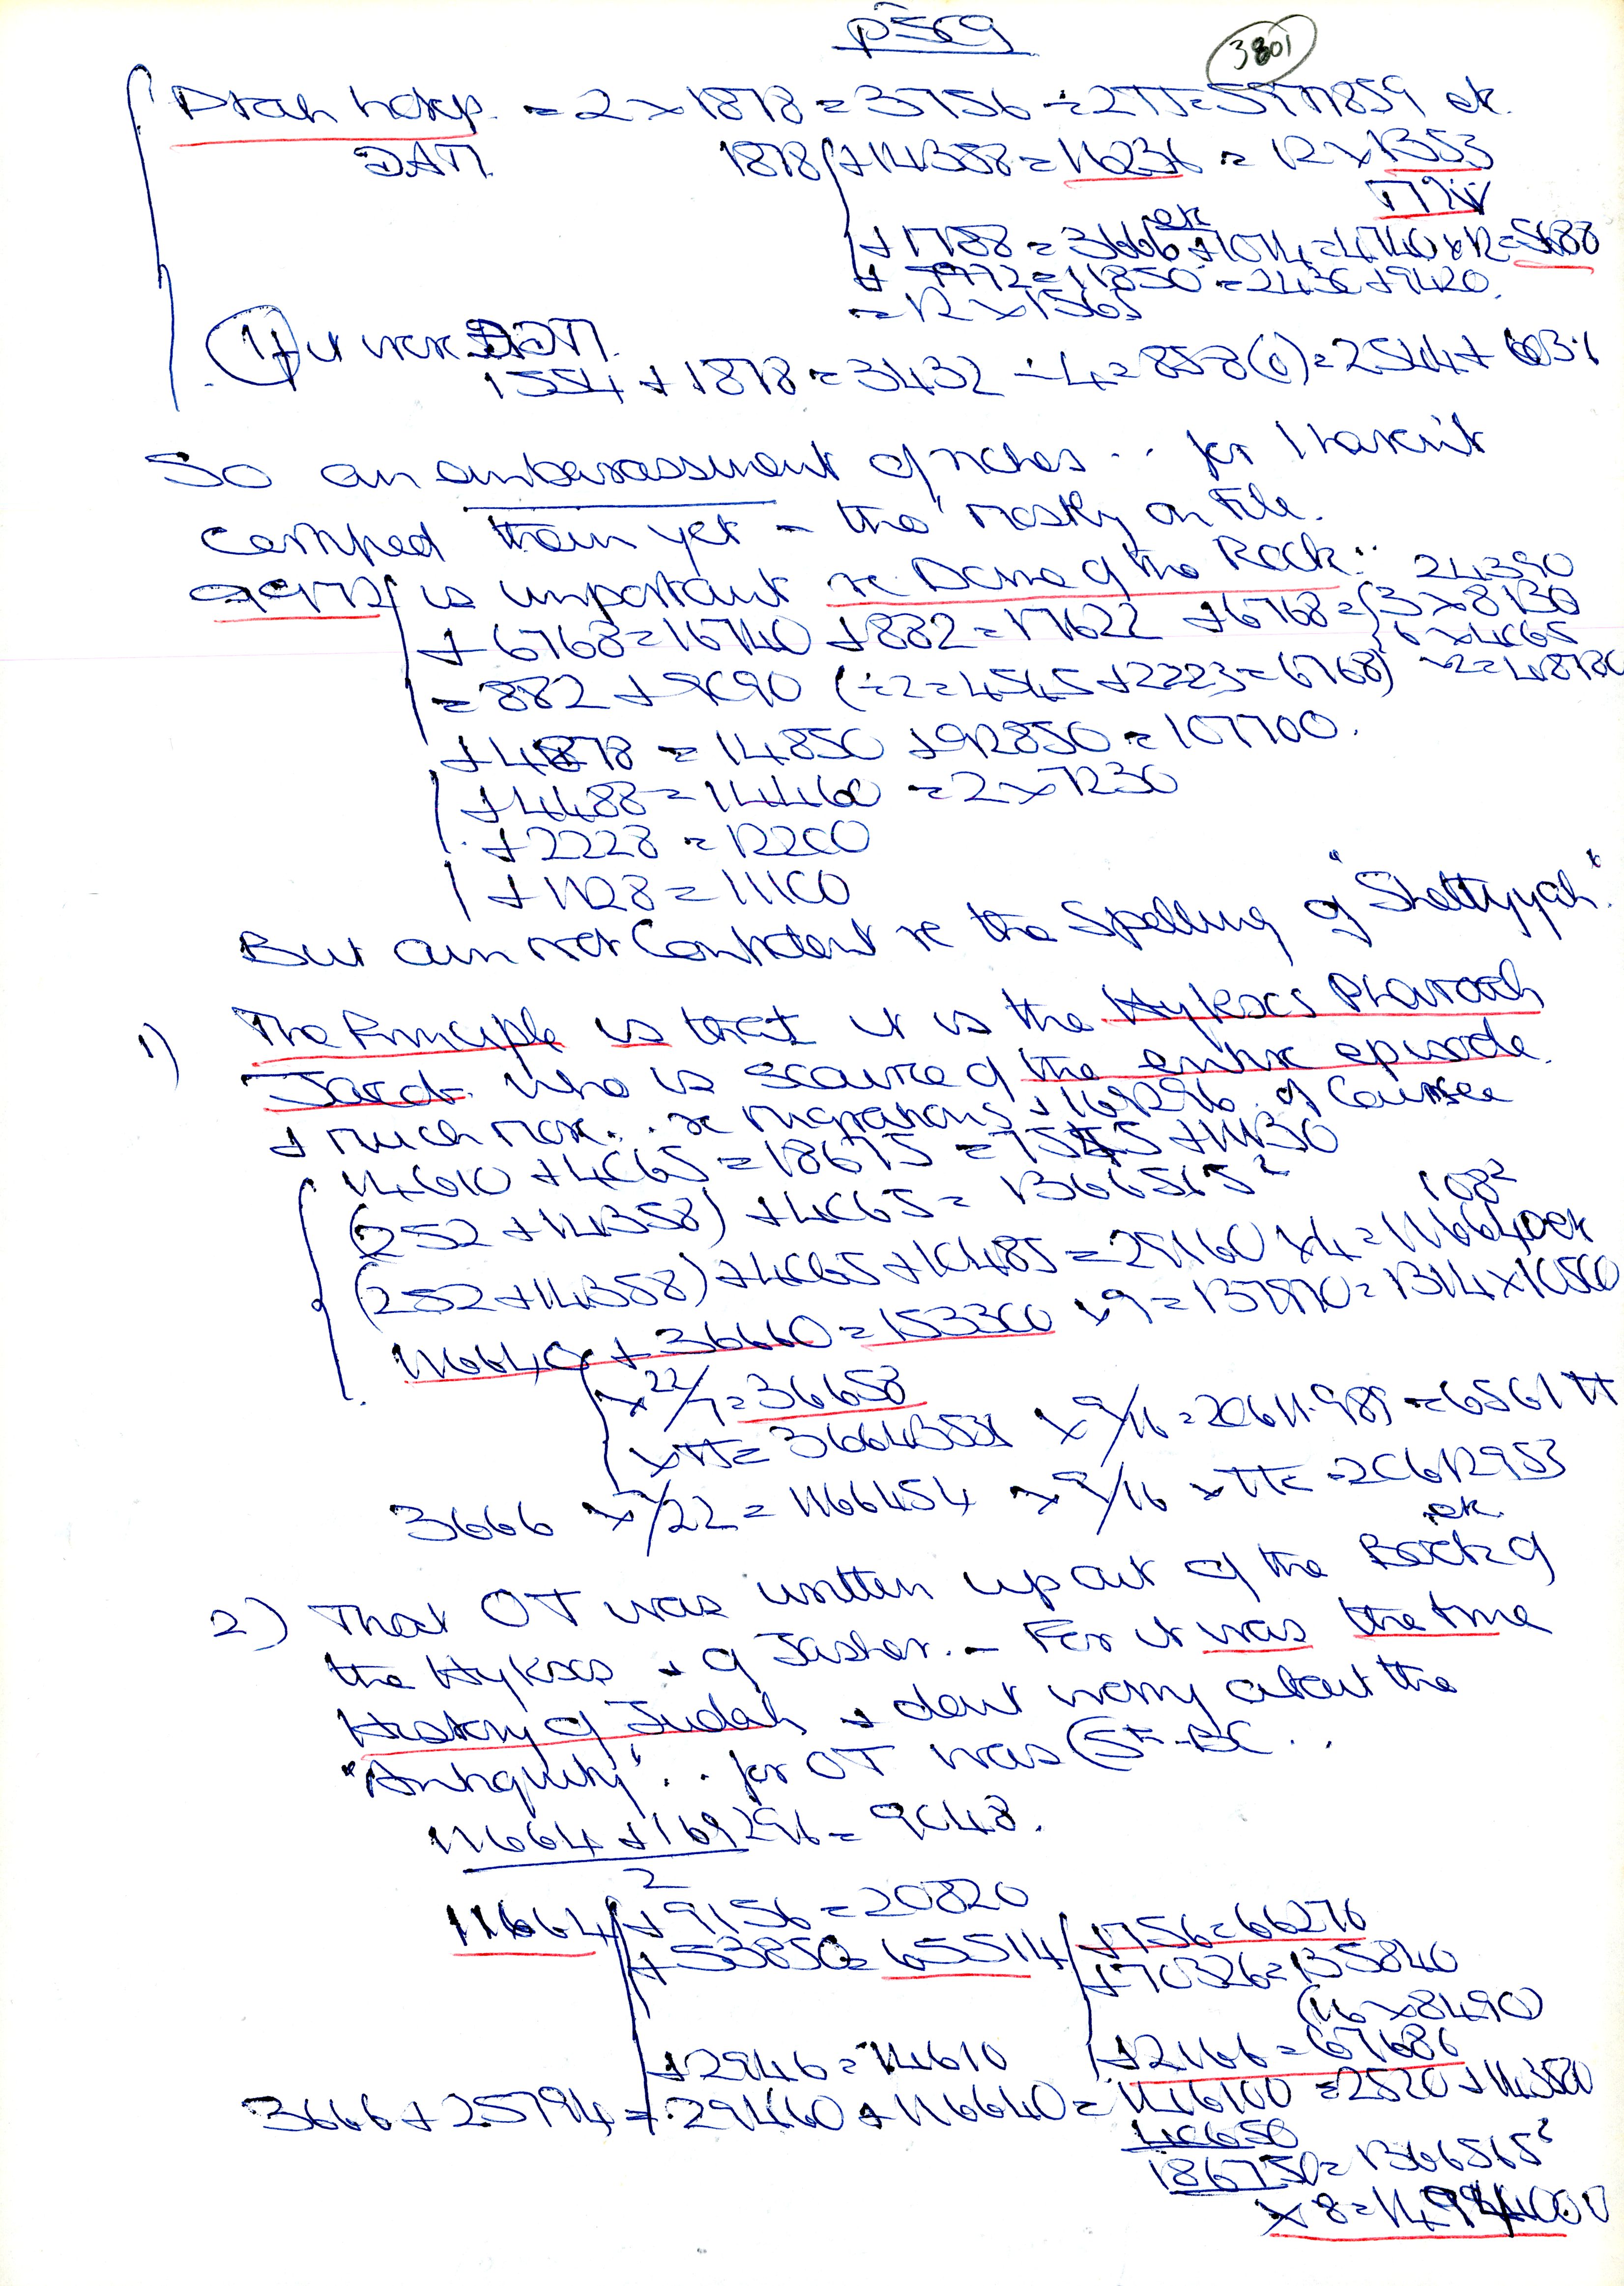 p569
3801
= 2 × 1878 = 3756 ÷ 2π = 5977859 etc.
1878 + 14358 = 16236 = 12 × 1353
+ 1788 = 3666 etc + 1074 = 4740 × 12 = 5688
+ 9972 = 11850 = 2436 + 9420
= 12 ×
If it were
1554 + 1878 = 3432 ÷ 4 = 858(0) = 2544 +
So an embarassment of riches .. for I haven't
them yet - tho' mostly on File.
9972 is important re Dome of the Rock: 24390
+ 6768 = 16740 + 882 = 17622 + 6768 = 3 × 8130
6 × 4065
= 882 + 9090 (÷2 = 4545 + 2223 = 6768) ×2 = 48780
+ 4878 = 14850 + 92850 = 107700.
+ 4488 = 14460 = 2 × 7230
+ 2228 = 12200
+ 1128 = 11100
But am not Confident re the Spelling of "Shettyyah".
1) The Principle is that it is the Hyksos Pharaoh
who is source of the entire episode.
+ much more .. re migrations + 169296 of Course
14610 + 4065 = 18675 = 7545 + 11130
(252 + 14358) + 4065 = 1366565²
108²
(252 + 14358) + 4065 + 10485 = 29160 × 4 = 116640 etc
116640 + 36660 = 153300 × 9 = 137970 = 1314 × 10500
× 22/7 = 36658
× π = 36643531 × 9/16 = 20611.989 = 6561 π
3666 × 7/22 = 1166454 × 9/16 × π = 20612953
etc.
2) That OT was written up out of the Book of
the Hyksos + of Jasher. - For it was the time
History of Judah + dont worry about the
"Antiquity" .. for OT was 5th BC ..
11664 + 169296 = 9048.
2
11664 + 9156 = 20820
+ 53850 = 65514 + 756 = 66270
+ 70326 = 135840
(16 × 8490)
+ 2946 = 14610 + 2166 = 67680
3666 + 25794 = 29460 + 116640 = 146100 = 2520 + 143580
40650
186750 = 1366565²
× 8 = 1494000